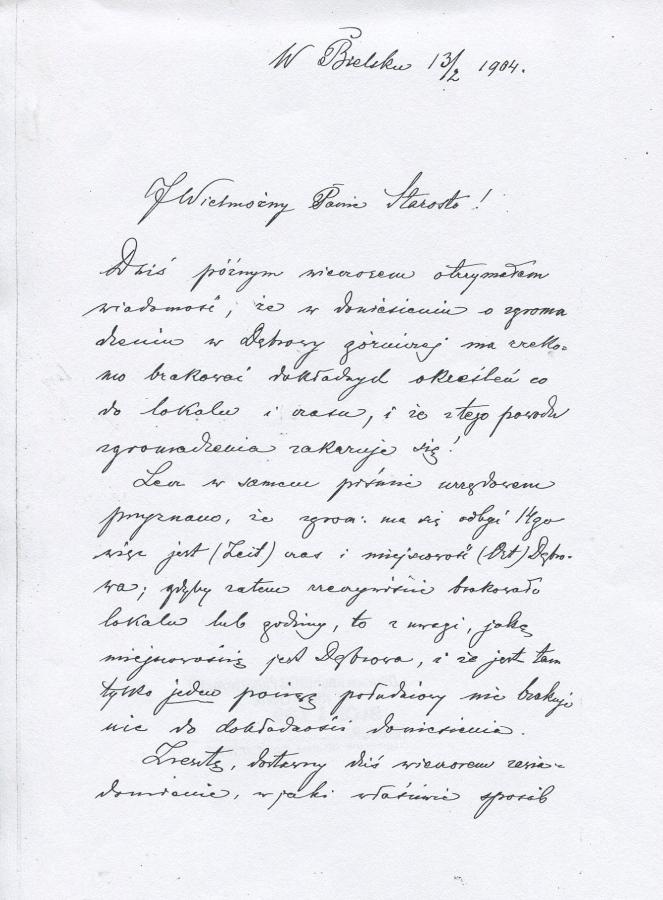 W Bielsku 13/2 1904.
JWielmożny Panie Starosto!
Dziś późnym wieczorem otrzymałem
wiadomość, że w doniesieniu o zgroma
dzeniu w Dąbrowy górniczej ma rzeko-
mo brakować dokładnych określeń co
do lokalu i czasu, i że z tego powodu
zgromadzenia zakazuje się!
Lecz w samem piśmie urzędowem
przyznano, że zgrom: ma się odbyć 14go
więc jest (Zeit) czas i miejscowość (Ort) Dąbro-
wa; gdyby zatem rzeczywiście brakowało
lokalu lub godziny, to z uwagi, jaką
miejscowością jest Dąbrowa, i że jest tam
tylko jeden pociąg południowy nic brakuje
nic do dokładności doniesienia.
Zresztą, dostawszy dziś wieczorem zawia-
domienie, w jaki właściwie sposób